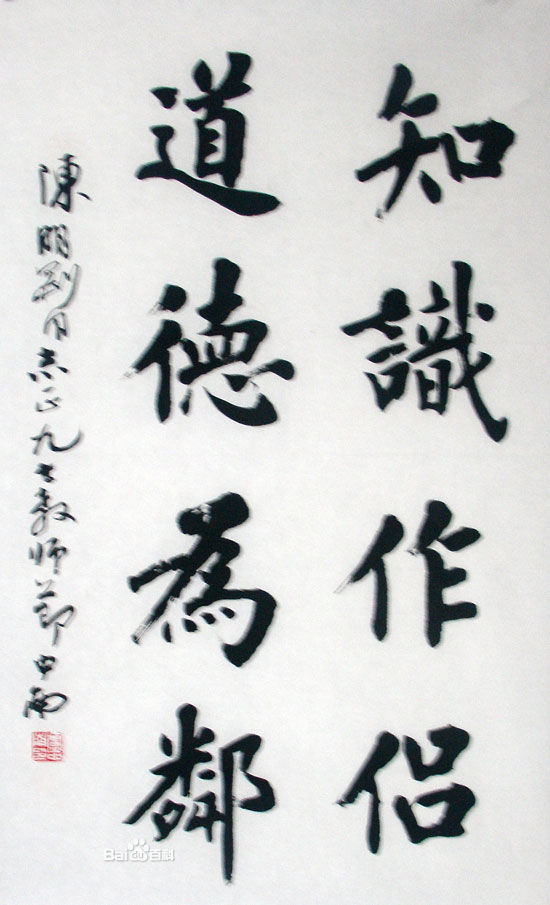 知識作侶
道德為鄰
陳明剛同志正九七教師節中南
Baidu百科